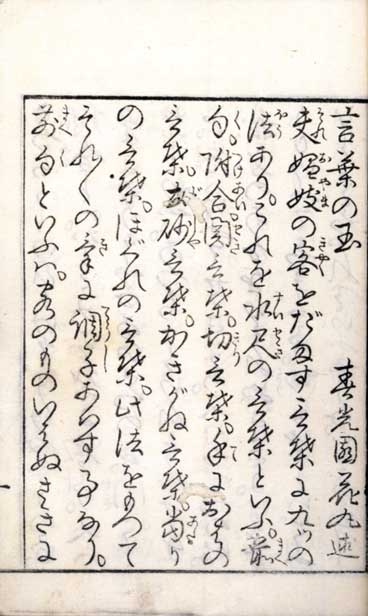 言葉の玉 春光園花丸述
夫娼妓の客をだます言葉に九ツの
法あり。これを水尽の言葉といふ。前
句。附合。関言葉。切言葉。手におはの
言葉。真砂言葉。かさがね言葉。
の言葉。ほぐれの言葉。此法をもつて
それ〳〵の客に調子あはす事なり。
前句といふハ。客のものいはぬさきに